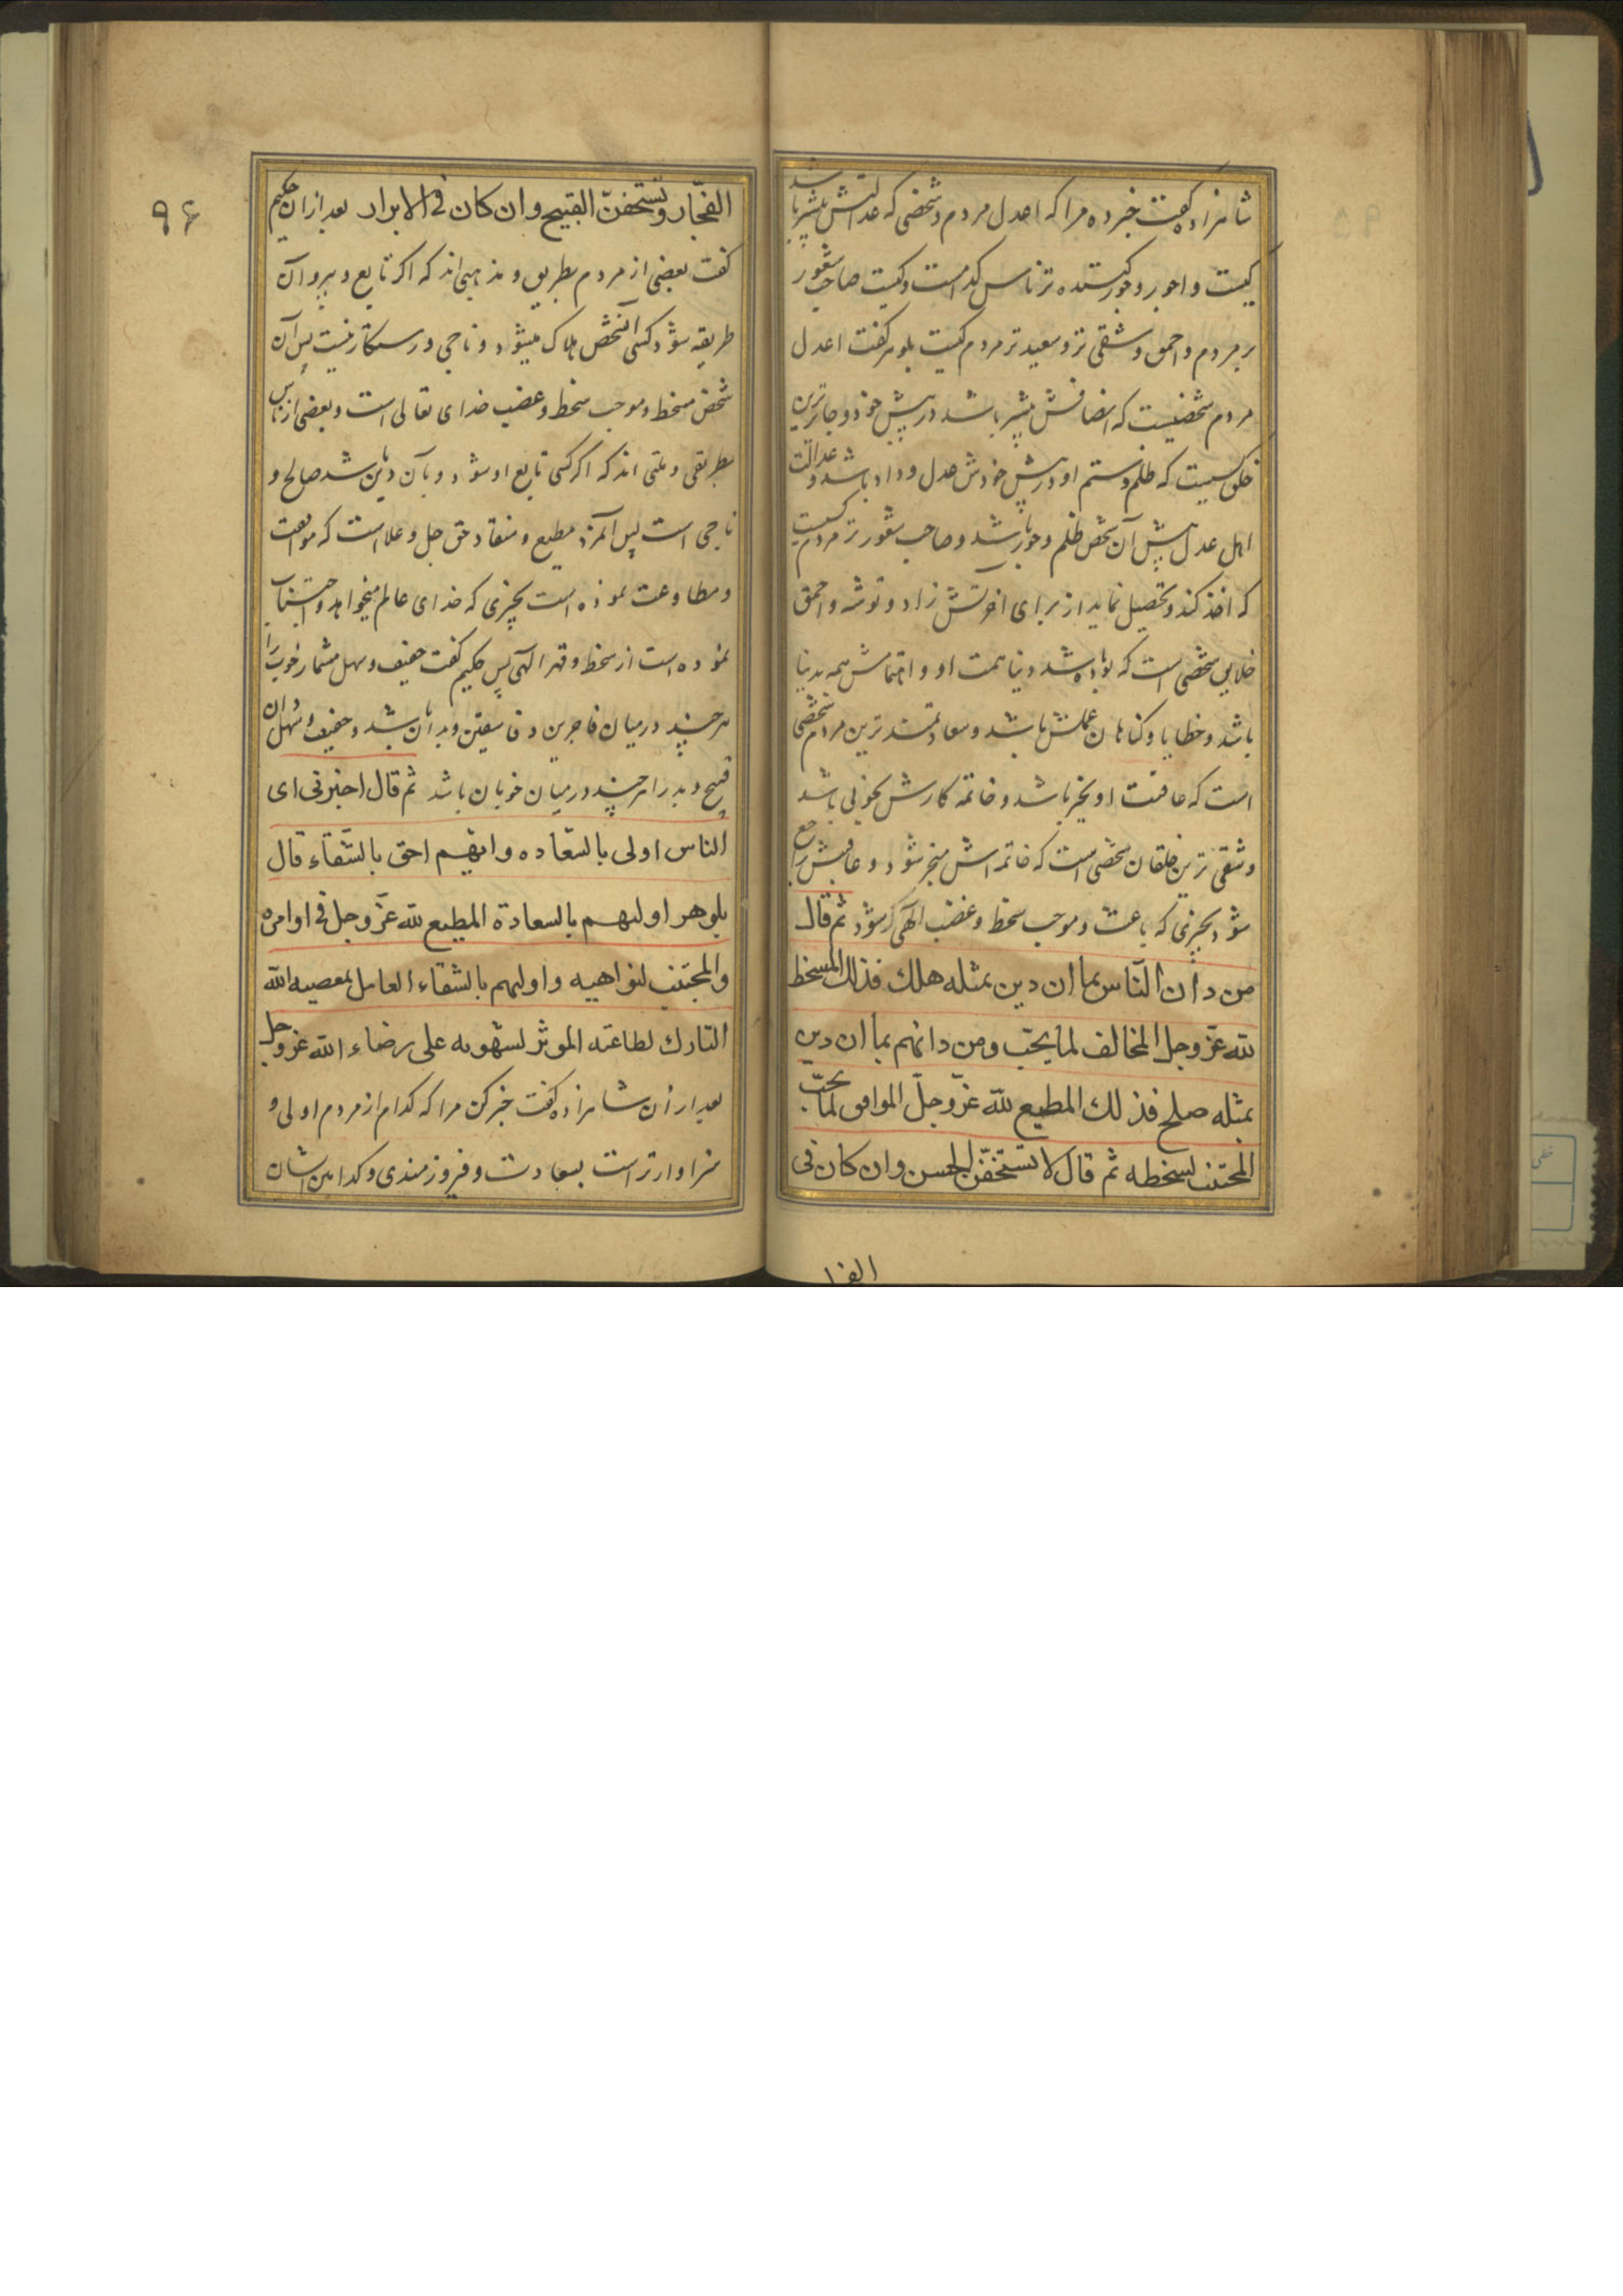 شاهزاده گفت خبر ده مرا که اعدل مردم و شخصی که عدالتش بیشتر باشد
کیست و اجور و جور کننده تر ناس کدامست و کیست صاحب شعور
بر مردم و احمق و شقی تر و سعید تر مردم کیست بلوهر گفت اعدل
مردم شخصیست که انصافش بیشتر باشد در پیش خود و جابرترین
خلق کسیست که ظلم و ستم او در پیش خودش عدل و داد باشد و عدالت
اهل عدل پیش آن شخص ظلم و جور باشد و صاحب شعور تر مردم کسیست
که اخذ کند و تحصیل نماید از برای آخرتش زاد و توشه و احمق
خلایق شخصی است که بوده باشد دنیا همت او و اهتمامش همه بدنیا
باشد و خطایا و کناهان عملش باشد و سعادتمند ترین مردم شخصی
است که عاقبت او بخیر باشد و خاتمه کارش بخوبی باشد
و شقی ترین خلقان شخصی است که خاتمه اش منجر شود و عاقبتش راجع
شود بچیزی که باعث و موجب سخط و غضب الهی کرشود ثم قال
من دان الناس بما ان دین بمثله هلك فذلك المسخط
لله عزّ وجل المخالف لما یحبّ ومن دانهم بما ان دین
بمثله صلح فذلك المطیع لله عزّ وجلّ الموافق لما یحبّ
المجتنب لسخطه ثم قال لا تستخفّنّ الحسن وان کان فی
الفا
۹۶
الفجّار و تستخفنّ القبیح وان کان فی الابرار بعد از ان حکیم
کفت بعضی از مردم بطریق و مذاهبی اند که اکر تابع و پیرو آن
طریقه شود کسی آنشخص هلاک میشود و ناجی و رستکار نیست پس آن
شخص مسخط و موجب سخط و غضب خدای تعالی است و بعضی از ناس
بطریقی و ملتی اند که اکر کسی تابع او شود و بآن دین باشد صالح و
ناجی است پس آنمرد مطیع و منقاد حق جل و علاست که موافقت
و مطاوعت نموده است بچیزی که خدای عالم میخواهد و اجتناب
نموده است از سخط و قهر الهی پس حکیم کفت خفیف و سهل مشمار خوب را
هر چند در میان فاجرین و فاسقین و بدان باشد و خفیف و سهل دان
قبیح و بد را هر چند در میان خوبان باشد ثم قال اخبرنی ای
الناس اولی بالسّعاده وایّهم احق بالشّقاء قال
بلوهر اولیهم بالسعادة المطیع لله عزّ وجل فی اوامره
والمجتنب لنواهیه واولیهم بالشقاء العامل بمعصیه الله
التارك لطاعته الموثر لشهوته علی رضاء الله عز وجل
بعد از آن شاهزاده کفت خبر کن مرا که کدام از مردم اولی و
سزاوار تر است بسعادت و فیروزمندی و کدامین ایشان